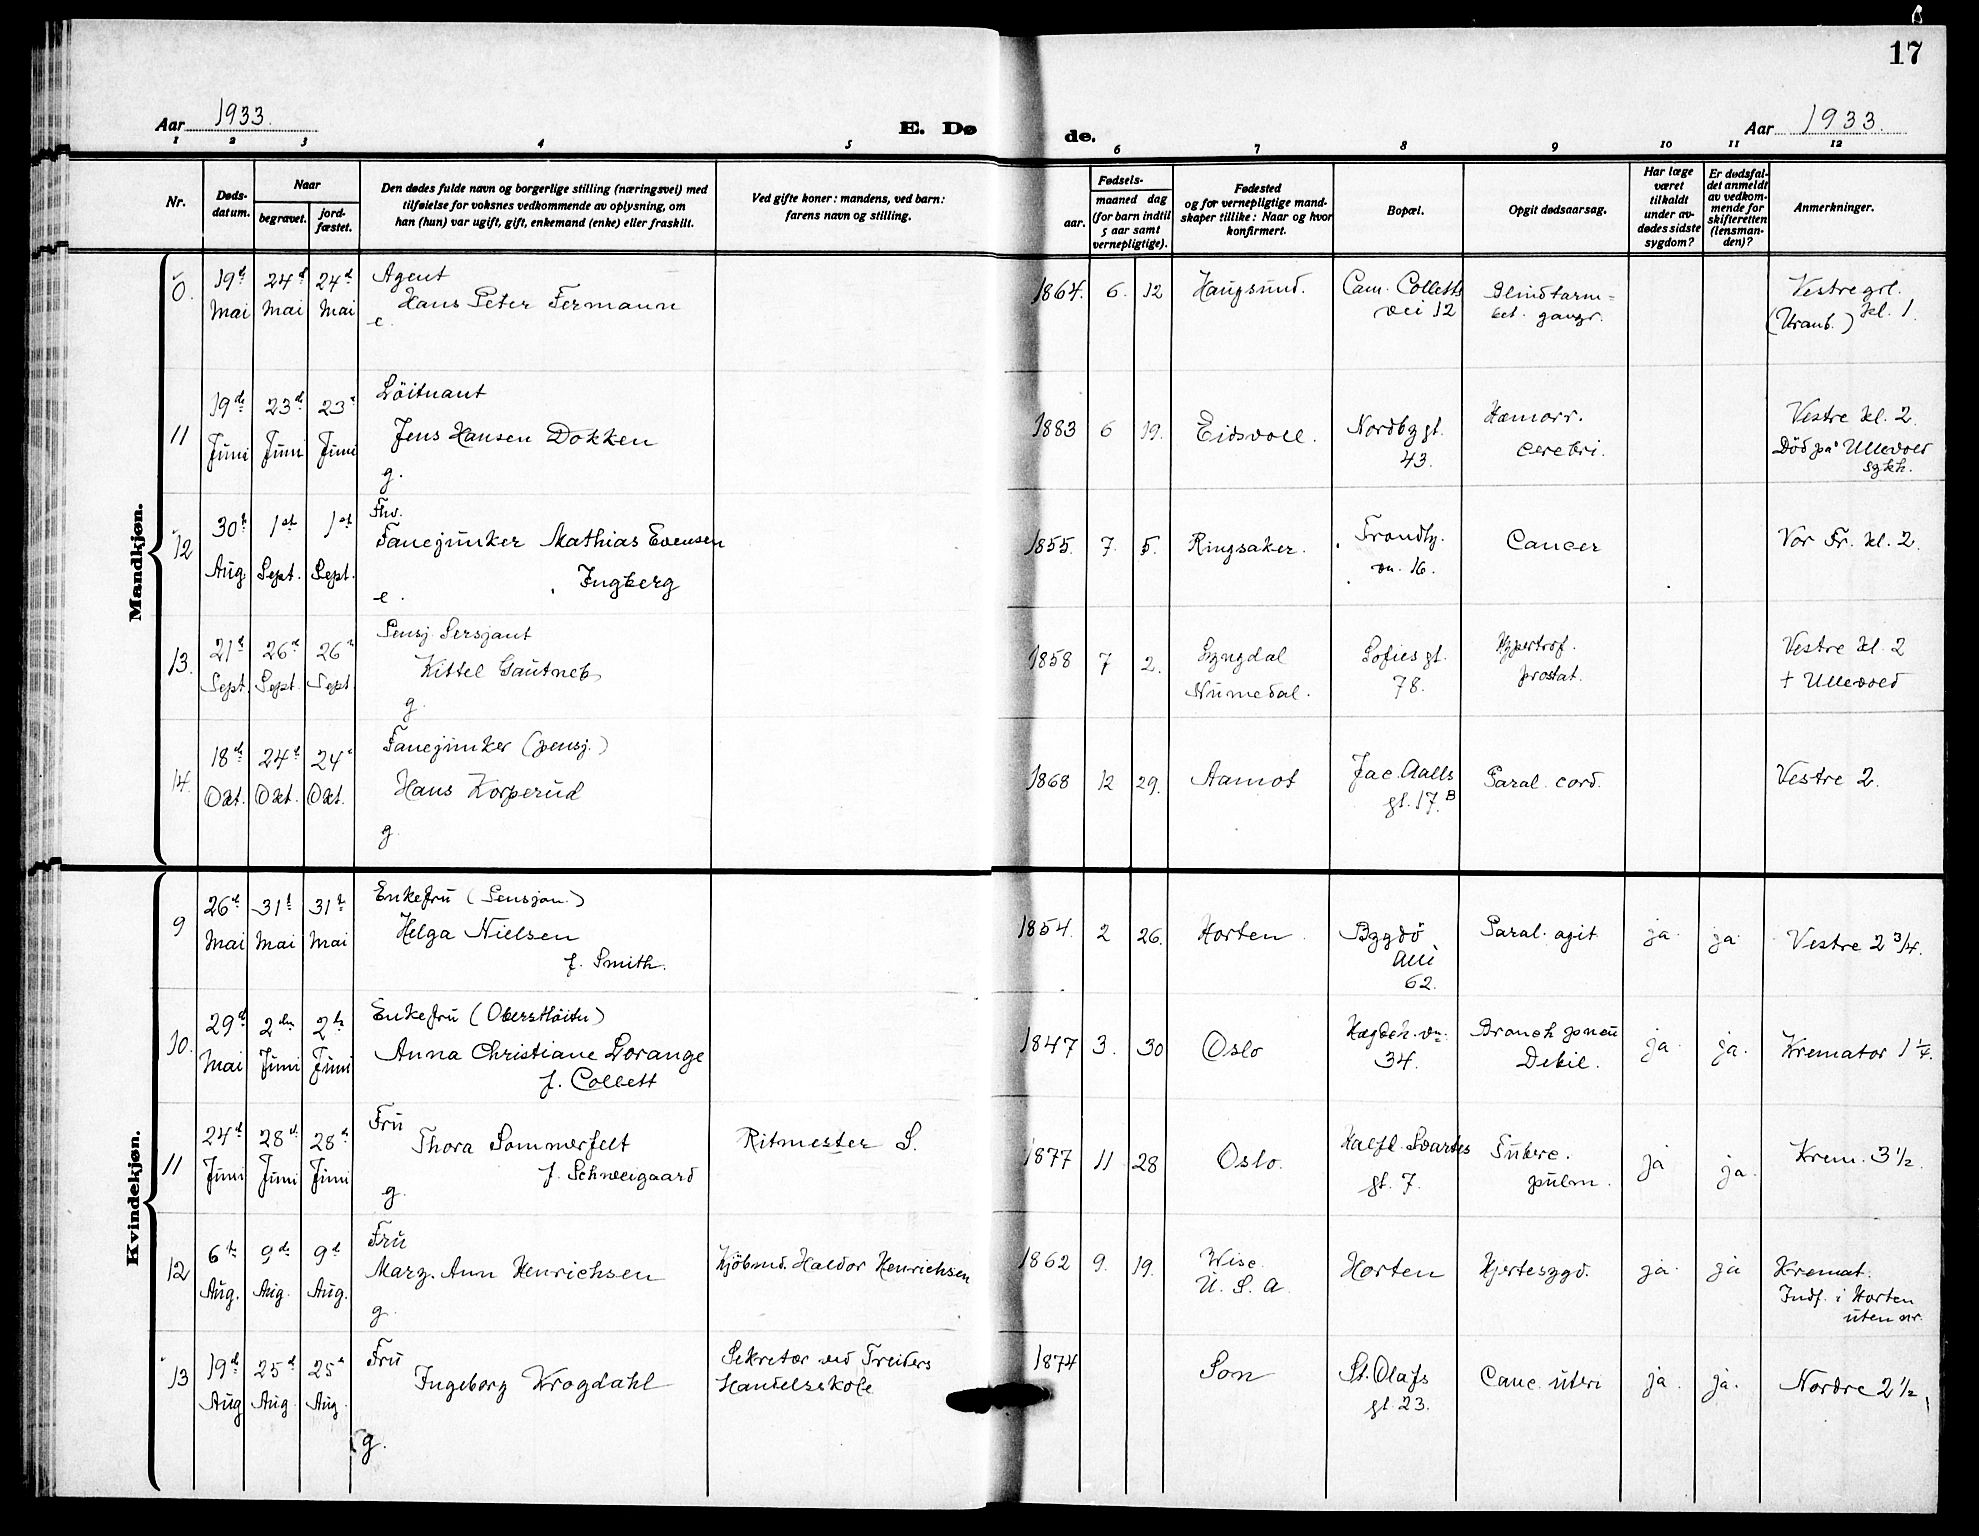 17
Aar 1933.
E. Dø
de.
Aar 1933.
1 2 3 4 5 6 7 8 9 10 11 12
Nr.
Døds-
datum.
Naar
begravet.
jord-
fæstet.
Den dødes fulde navn og borgerlige stilling (næringsvei) med
tilføielse for voksnes vedkommende av oplysning, om
han (hun) var ugift, gift, enkemand (enke) eller fraskilt.
Ved gifte koner: mandens, ved barn:
farens navn og stilling.
Fødsels-
aar.
maaned dag
(for barn indtil
5 aar samt
vernepligtige).
Fødested
og for vernepligtige mand-
skaper tillike: Naar og hvor
konfirmert.
Bopæl.
Opgit dødsaarsag.
Har læge
været
tilkaldt
under av-
dødes sidste
sygdom?
Er dødsfal-
det anmeldt
av vedkom-
mende for
skifteretten
(lensman-
den)?
Anmerkninger.
Mandkjøn.
19d Mai
24d Mai
24d Mai
Agent
Hans Peter Fermann
e.
1864. 6. 12
Haugsund.
Cam. Colletts
vei 12
Blindtarm-
bet. gangr.
Vestre grl.
kl. 1.
(Uranb.)
11
19de Juni
23d Juni
23d Juni
Löitnant
Jens Hansen Dokken
g.
1883 6 19.
Eidsvoll.
Nordbygt.
43.
Hæmorr.
cerebri.
Vestre kl. 2
Död på Ullevold
sykh.
12
30t Aug.
1st Sept.
1st Sept.
Fhv.
Fanejunker Mathias Evensen
Ingberg
e.
1855. 7. 5.
Ringsaker.
Frondby.
vn. 16.
Cancer
Vor Fr. kl. 2.
13.
21t Sept.
26d Sept.
26d Sept.
Pensj. Sersjant
Kittel Gautneb
g.
1858 7 2.
Lyngdal
Numedal.
Sofies gt.
78.
Hypertrof.
prostat.
Vestre kl. 2
+ Ullevold
14.
18de Okt.
24d Okt.
24d Okt.
Fanejunker (pensj.)
Hans Korperud
g.
1868 12 29.
Aamot
Jac. Aalls
gt. 17.B
Paral. cord.
Vestre 2.
Kvindekjøn.
9
26d Mai
31t Mai
31t Mai
Enkefru (Pensjon.)
Helga Nielsen
f. Smith.
1854. 2 26.
Horten.
Bygdö
Alle
62.
Paral. agit
ja.
ja.
Vestre 2 3/4.
10.
29d Mai
2den Juni
2de Juni
Enkefru (Oberstlöitn)
Anna Christiane Lorange
f. Collett
1847 3. 30
Oslo
Hægdeh.vn:
34.
Bronch pneu
Debil.
ja.
ja.
Kremator 1 1/4.
11
24d Juni
28d Juni
28d Juni
Fru
Thora Sommerfelt
f. Schweigaard
g.
Ritmester S.
1877 11 28
Oslo.
Halfd. Svartes
gt. 7.
Tuberc.
pulm.
ja
ja.
Krem. 3 1/2.
12
6te Aug.
9de Aug.
9d Aug.
Fru
Marg. Ann Henrichsen
g.
Kjöbmd. Haldor Henrichsen
1862 9. 19.
Wisc.
U. S. A.
Horten
Hjertesygd.
ja.
ja
Kremat.
Indf. i Horten
uten nr.
13
19d Aug
25d Aug.
25d Aug.
Fru
Ingeborg Krogdahl
g.
Sekretær ved Treiders
Handelsskole
1874
Son
St. Olafs
gt. 23.
Canc. uteri
ja.
ja.
Nordre 2 1/2